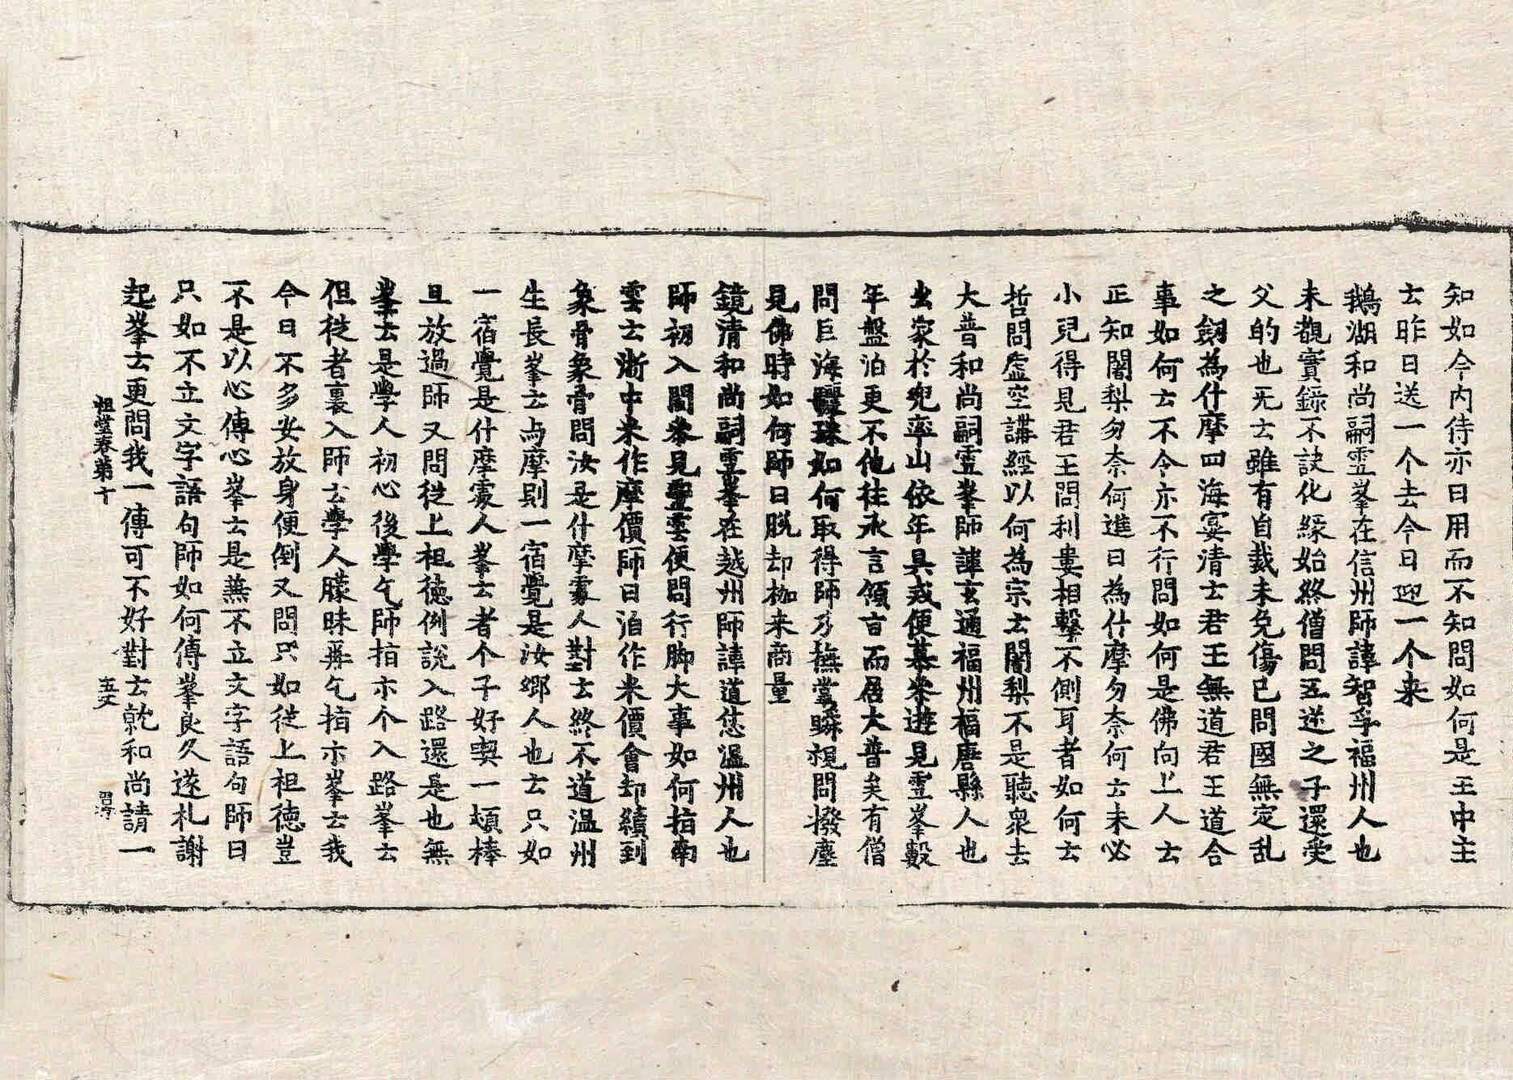 知如今內侍亦日用而不知問如何是王中主
士昨日送一个去今日迎一个来
鵝湖和尚嗣霊峯在信州師諱智孚福州人也
未覩實録不訣化緣始終僧問五逆之子還受
父的也无士雖有自裁未免傷己問國無定乱
之劔為什摩四海宴清士君王無道君王道合
事如何士不令亦不行問如何是佛向上人士
正知闍梨勿奈何進日為什摩勿奈何士未必
小兒得見君王問利婁相擊不側耳者如何士
哲問虛空講經以何為宗士闍梨不是聽衆去
大普和尚嗣霊峯師諱玄通福州福唐縣人也
出家於兜率山依年具戒便慕叅遊見霊峯數
年盤泊更不他往承言領旨而居大普矣有僧
問巨海驪珠如何取得師乃撫掌瞬視問撥塵
見佛時如何師日脱却枷来商量
鏡清和尚嗣霊峯在越州師諱道怤溫州人也
師初入閩叅見靈雲便問行脚大事如何指南
雲士浙中米作摩價師日洎作米價會却續到
象骨象骨問汝是什摩處人對士終不道溫州
生長峯士与摩則一宿覺是汝鄉人也士只如
一宿覺是什摩處人峯士者个子好喫一頓棒
且放過師又問従上祖德例說入路還是也無
峯士是學人初心後學乞師指示个入路峯士
但従者裏入師士學人朦昧再乞指示峯士我
今日不多安放身便倒又問只如従上祖德豈
不是以心傳心峯士是兼不立文字語句師日
只如不立文字語句師如何傳峯良久遂礼謝
起峯士更問我一傳可不好對士就和尚請一
祖堂卷第十